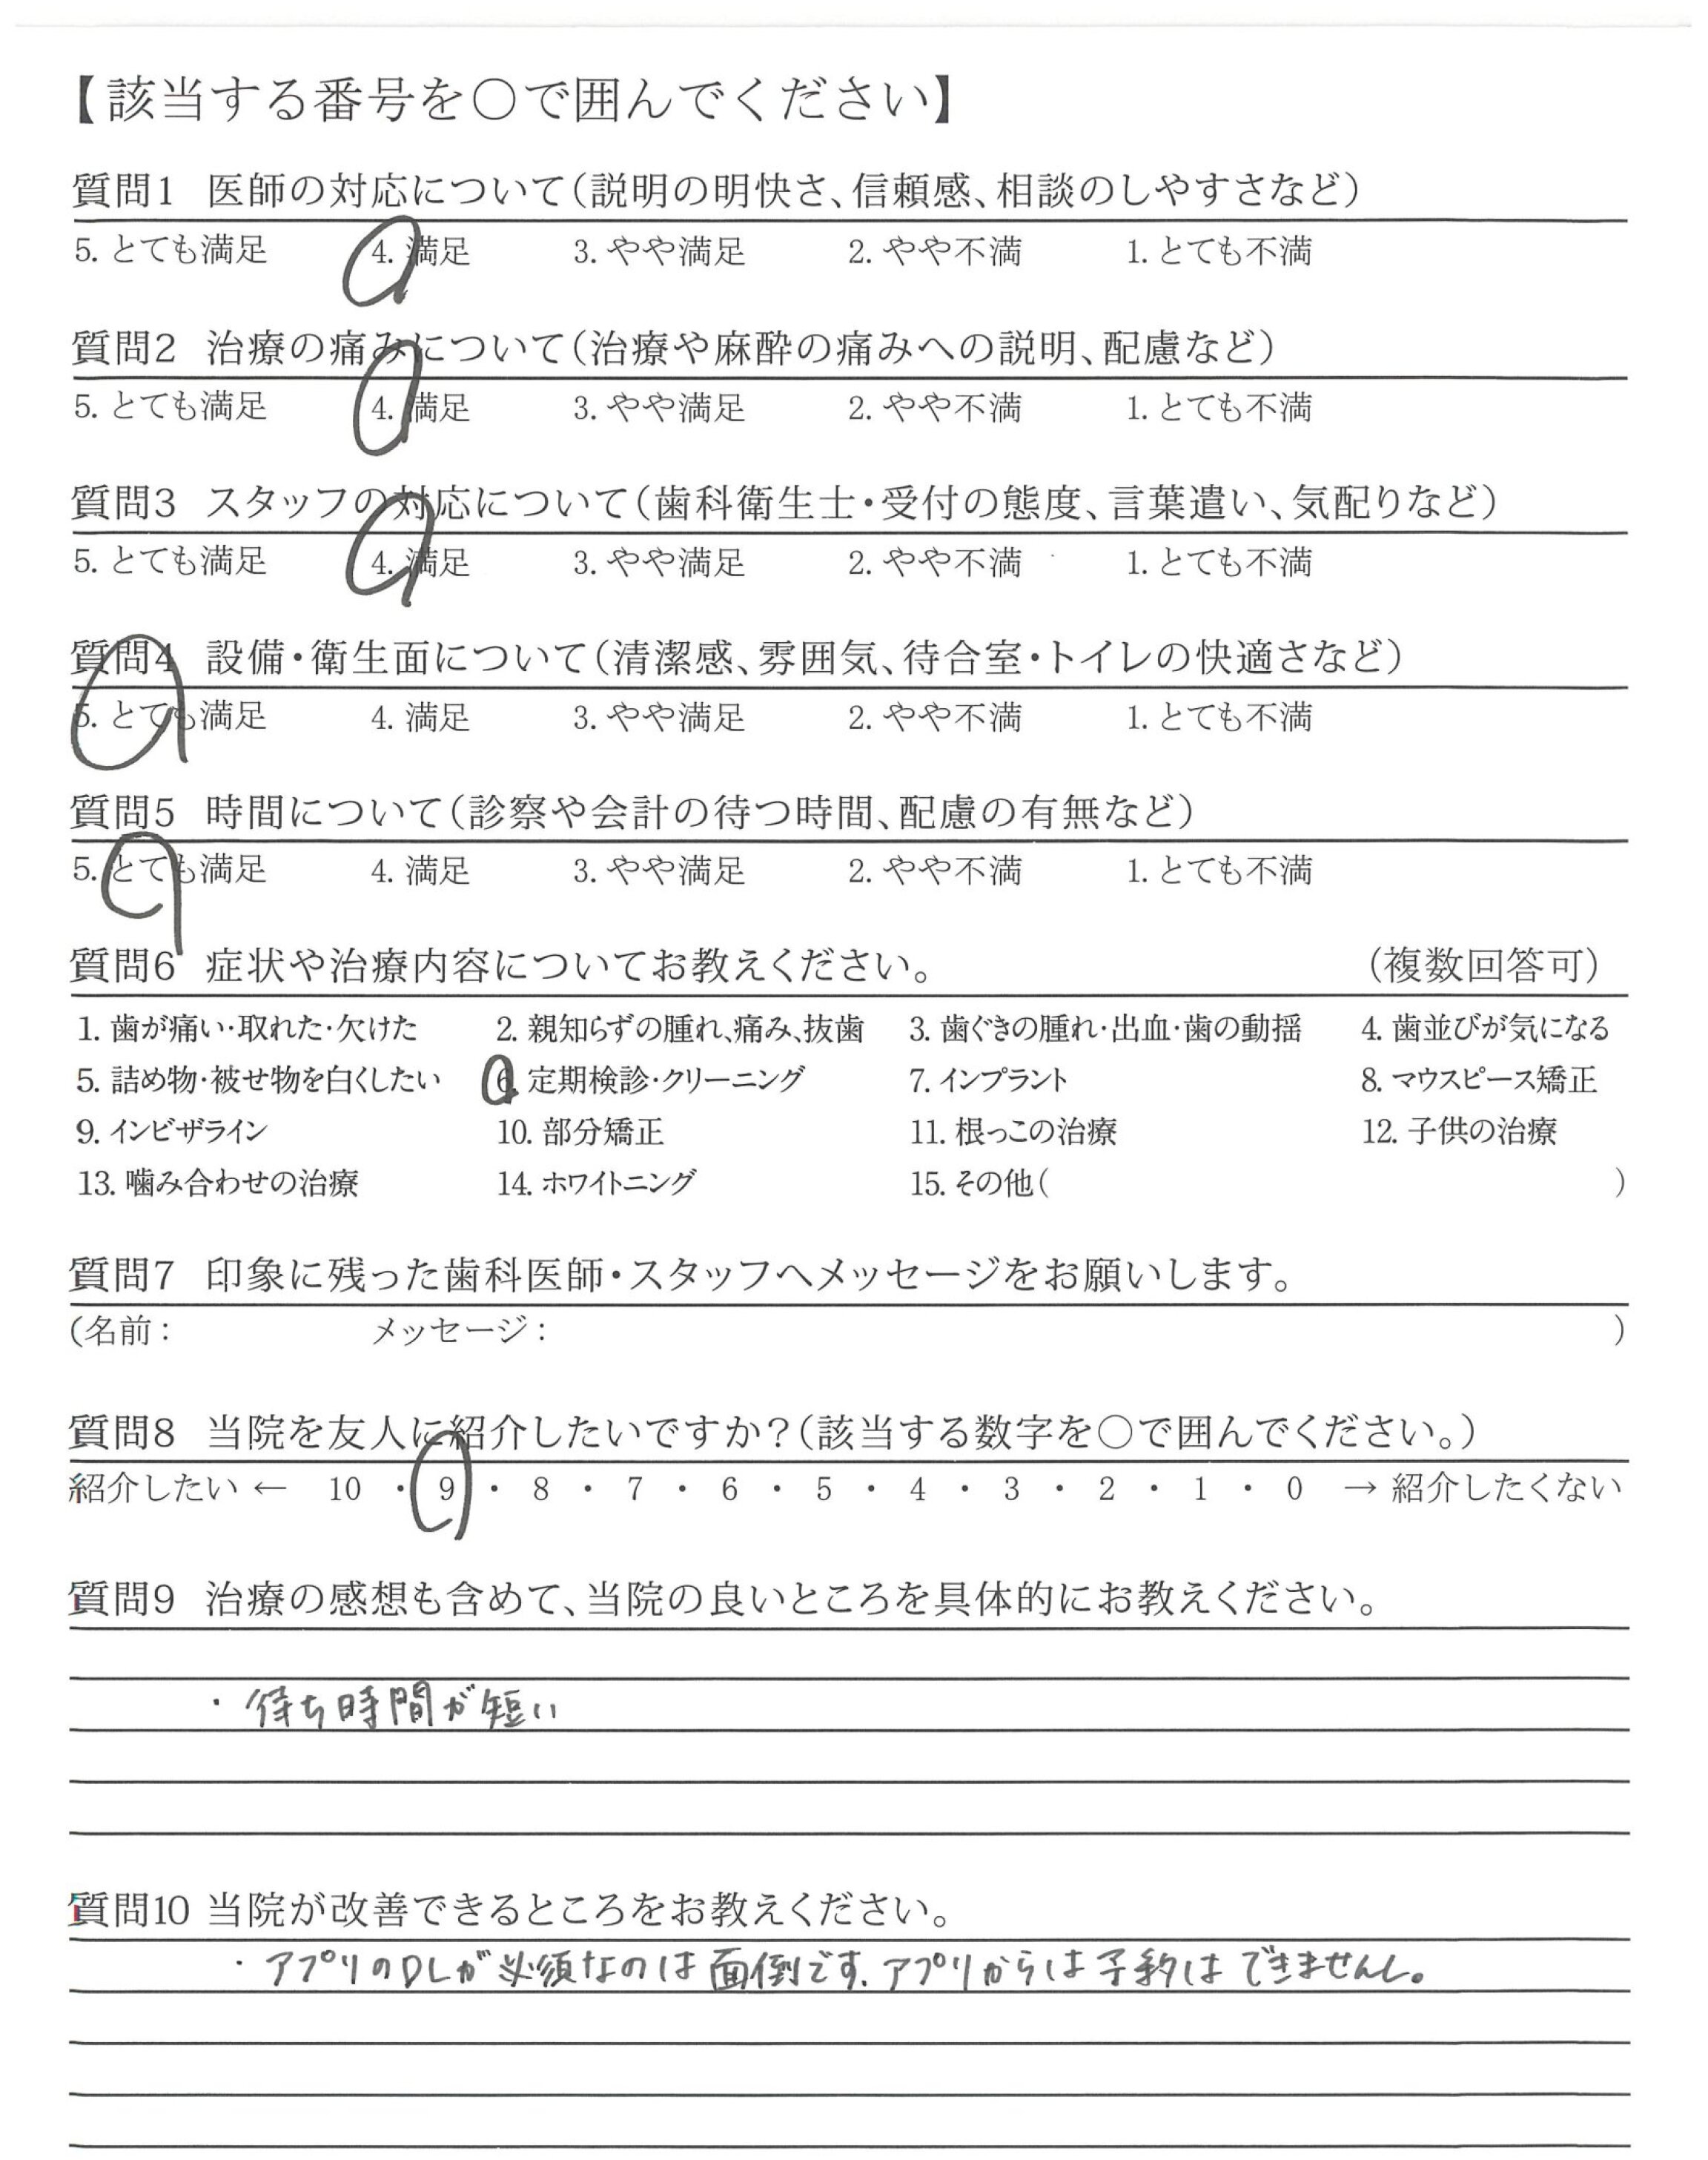 【該当する番号を○で囲んでください】
質問1 医師の対応について(説明の明快さ、信頼感、相談のしやすさなど)
5. とても満足 4. 満足 3. やや満足 2. やや不満 1. とても不満
質問2 治療の痛みについて(治療や麻酔の痛みへの説明、配慮など)
5. とても満足 4. 満足 3. やや満足 2. やや不満 1. とても不満
質問3 スタッフの対応について(歯科衛生士・受付の態度、言葉遣い、気配りなど)
5. とても満足 4. 満足 3. やや満足 2. やや不満 1. とても不満
質問4 設備・衛生面について(清潔感、雰囲気、待合室・トイレの快適さなど)
5. とても満足 4. 満足 3. やや満足 2. やや不満 1. とても不満
質問5 時間について(診察や会計の待つ時間、配慮の有無など)
5. とても満足 4. 満足 3. やや満足 2. やや不満 1. とても不満
質問6 症状や治療内容についてお教えください。 (複数回答可)
1. 歯が痛い・取れた・欠けた 2. 親知らずの腫れ、痛み、抜歯 3. 歯ぐきの腫れ・出血・歯の動揺 4. 歯並びが気になる
5. 詰め物・被せ物を白くしたい 6. 定期検診・クリーニング 7. インプラント 8. マウスピース矯正
9. インビザライン 10. 部分矯正 11. 根っこの治療 12. 子供の治療
13. 噛み合わせの治療 14. ホワイトニング 15. その他( )
質問7 印象に残った歯科医師・スタッフへメッセージをお願いします。
(名前: メッセージ: )
質問8 当院を友人に紹介したいですか?(該当する数字を○で囲んでください。)
紹介したい ← 10 ・ 9 ・ 8 ・ 7 ・ 6 ・ 5 ・ 4 ・ 3 ・ 2 ・ 1 ・ 0 → 紹介したくない
質問9 治療の感想も含めて、当院の良いところを具体的にお教えください。
・待ち時間が短い
質問10 当院が改善できるところをお教えください。
・アプリのDLが必須なのは面倒です。アプリからは予約はできませんし。